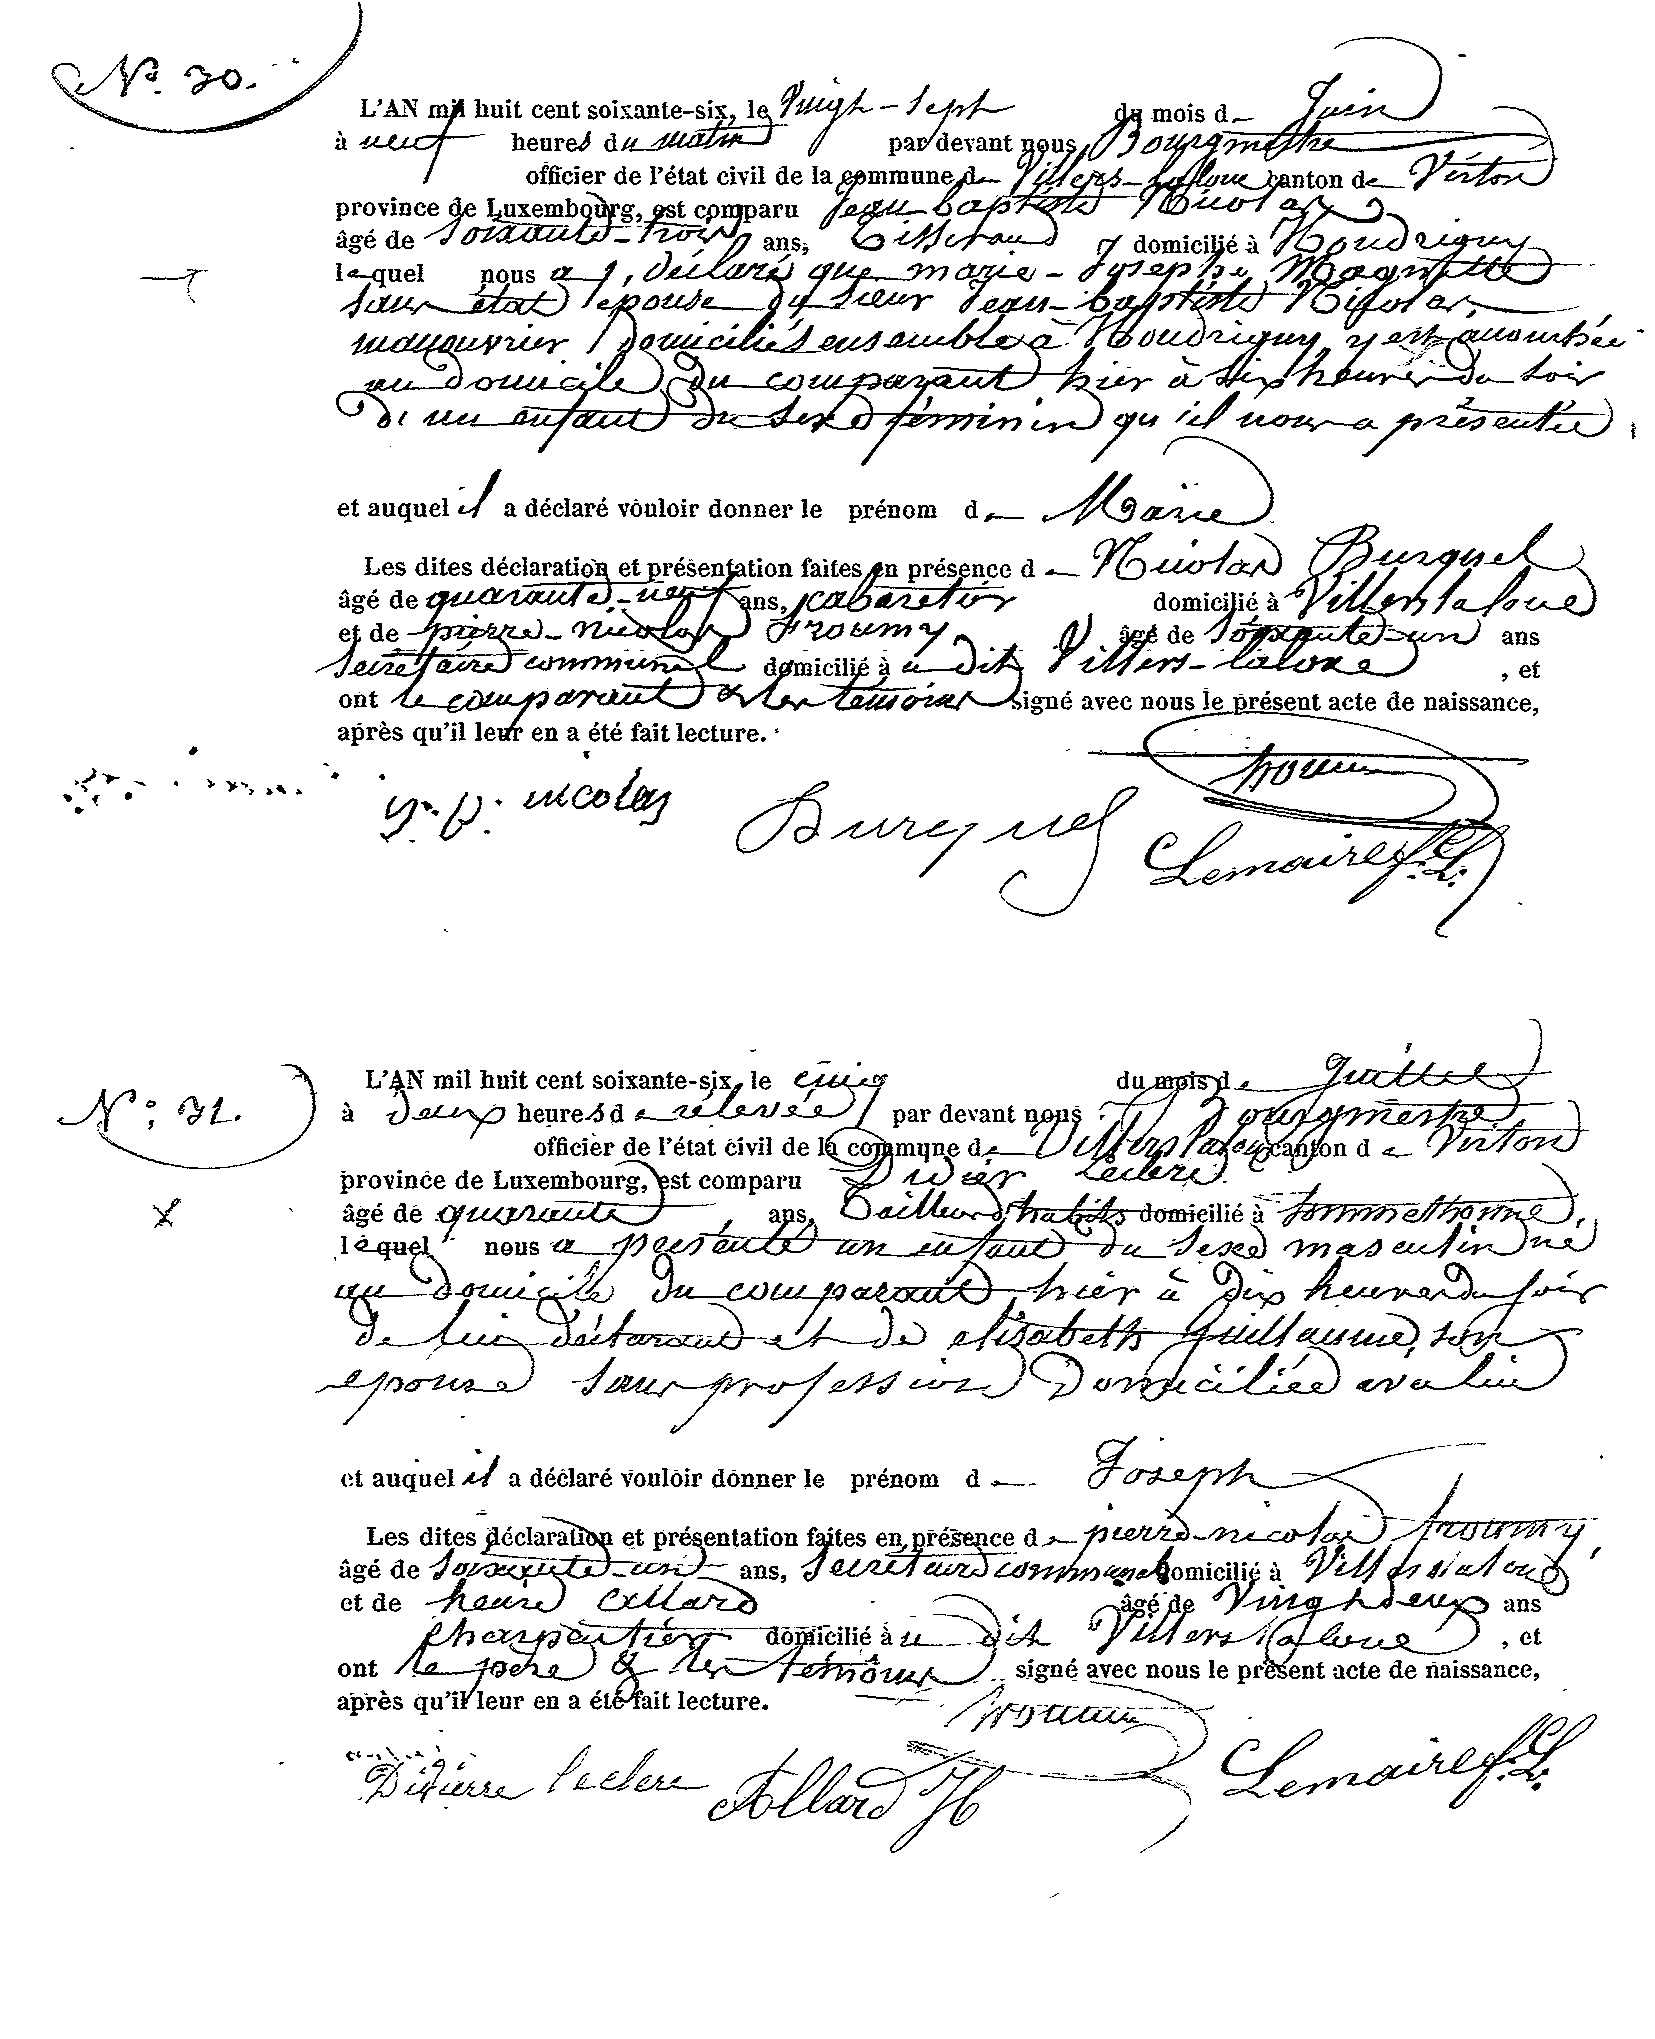 N° 30.
L'AN mil huit cent soixante-six, le Vingh-sept du mois de Juin
à neuf heures du matin par devant nous, Bourgmestre
officier de l'état civil de la commune de Villers-laloue canton de Virton
province de Luxembourg, est comparu Jean-baptiste Nicolas
âgé de soixante-trois ans, Tisserand domicilié à Houdrigny
lequel nous a déclaré que marie-Josephe Magnette
sans état épouse du sieur Jean-baptiste Nicolas,
manouvrier domiciliés ensemble à Houdrigny y est accouchée
au domicile du comparant hier à six heures du soir
d'un enfant du sexe féminin qu'il nous a présentée
et auquel il a déclaré vouloir donner le prénom de Marie
Les dites déclaration et présentation faites en présence de Nicolas Burquel
âgé de quarante-neuf ans, cabaretier domicilié à Villerslaloue
et de pierre-nicolas froumy, âgé de soixante-un ans
secrétaire communal domicilié à u dit Villers-laloue, et
ont le comparant & les témoins signé avec nous le présent acte de naissance,
après qu'il leur en a été fait lecture.
J. B. nicolas
Burquel
froumy
Lemaire f. L.
N°. 31.
L'AN mil huit cent soixante-six, le cinq du mois de Juillet
à deux heures de relevée par devant nous Bourgmestre
officier de l'état civil de la commune de Villerslaloue canton de Virton
province de Luxembourg, est comparu Didier Leclere
âgé de quarante ans, Tailleur d'habits domicilié à Sommethonne,
lequel nous a présenté un enfant du sexe masculin né
au domicile du comparant hier à dix heures du soir
de lui déclarant et de elisabeth guillaume, son
épouse sans profession domiciliée avec lui
et auquel il a déclaré vouloir donner le prénom de Joseph
Les dites déclaration et présentation faites en présence de pierre-nicolas froumy,
âgé de soixante-un ans, secrétaire communal domicilié à Villerslaloue
et de henri allard âgé de Vingh deux ans
charpentier domicilié à u dit Villers laloue, et
ont le père & les témoins signé avec nous le présent acte de naissance,
après qu'il leur en a été fait lecture.
froumy
Didierre leclere
Allard H
Lemaire f. L.